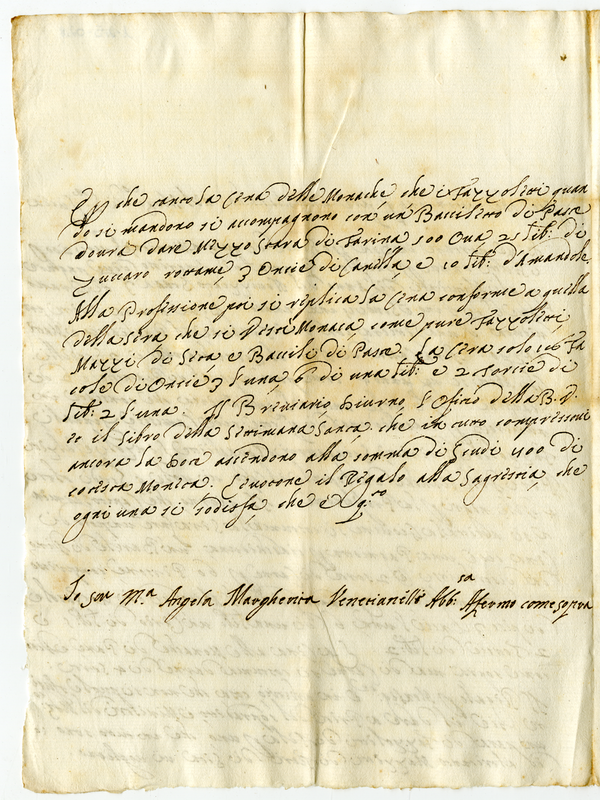 che tanto la Cena delle Monache che i Fazzoletti quan
do si mandono si accompagnono con un Bacciletto di Paste
doura dare Mezzo Stara di Farina 100 Oua 25 lib: di
zuccaro rottame, 3 Oncie di Canella e 10 lib: d'Amandole
Alla Professione poi si riplica la Cena conforme a quella
della sera che si Vesti Monaca come pure Fazzoletti
Mazzi di Seta e Baccile di Paste. La Cera solo 16 Fa
cole di Oncie 3 l'una 6 di una lib: e 2 Torcie di
lib: 2 l'una. Il Breviario, Diurno, l'Oficio della B. V.
et il libro della Settimana Santa, che in tutto compresoui
ancora la Dote ascendono alla somma di Scudi 400 di
cotesta Moneta. Si uocone il Regalo alla Sagrestia, che
ogni una si sodisfa, che è q.to
Io Suor M.a Angela Margherita Venetianelli Abb:sa Afermo come sopra